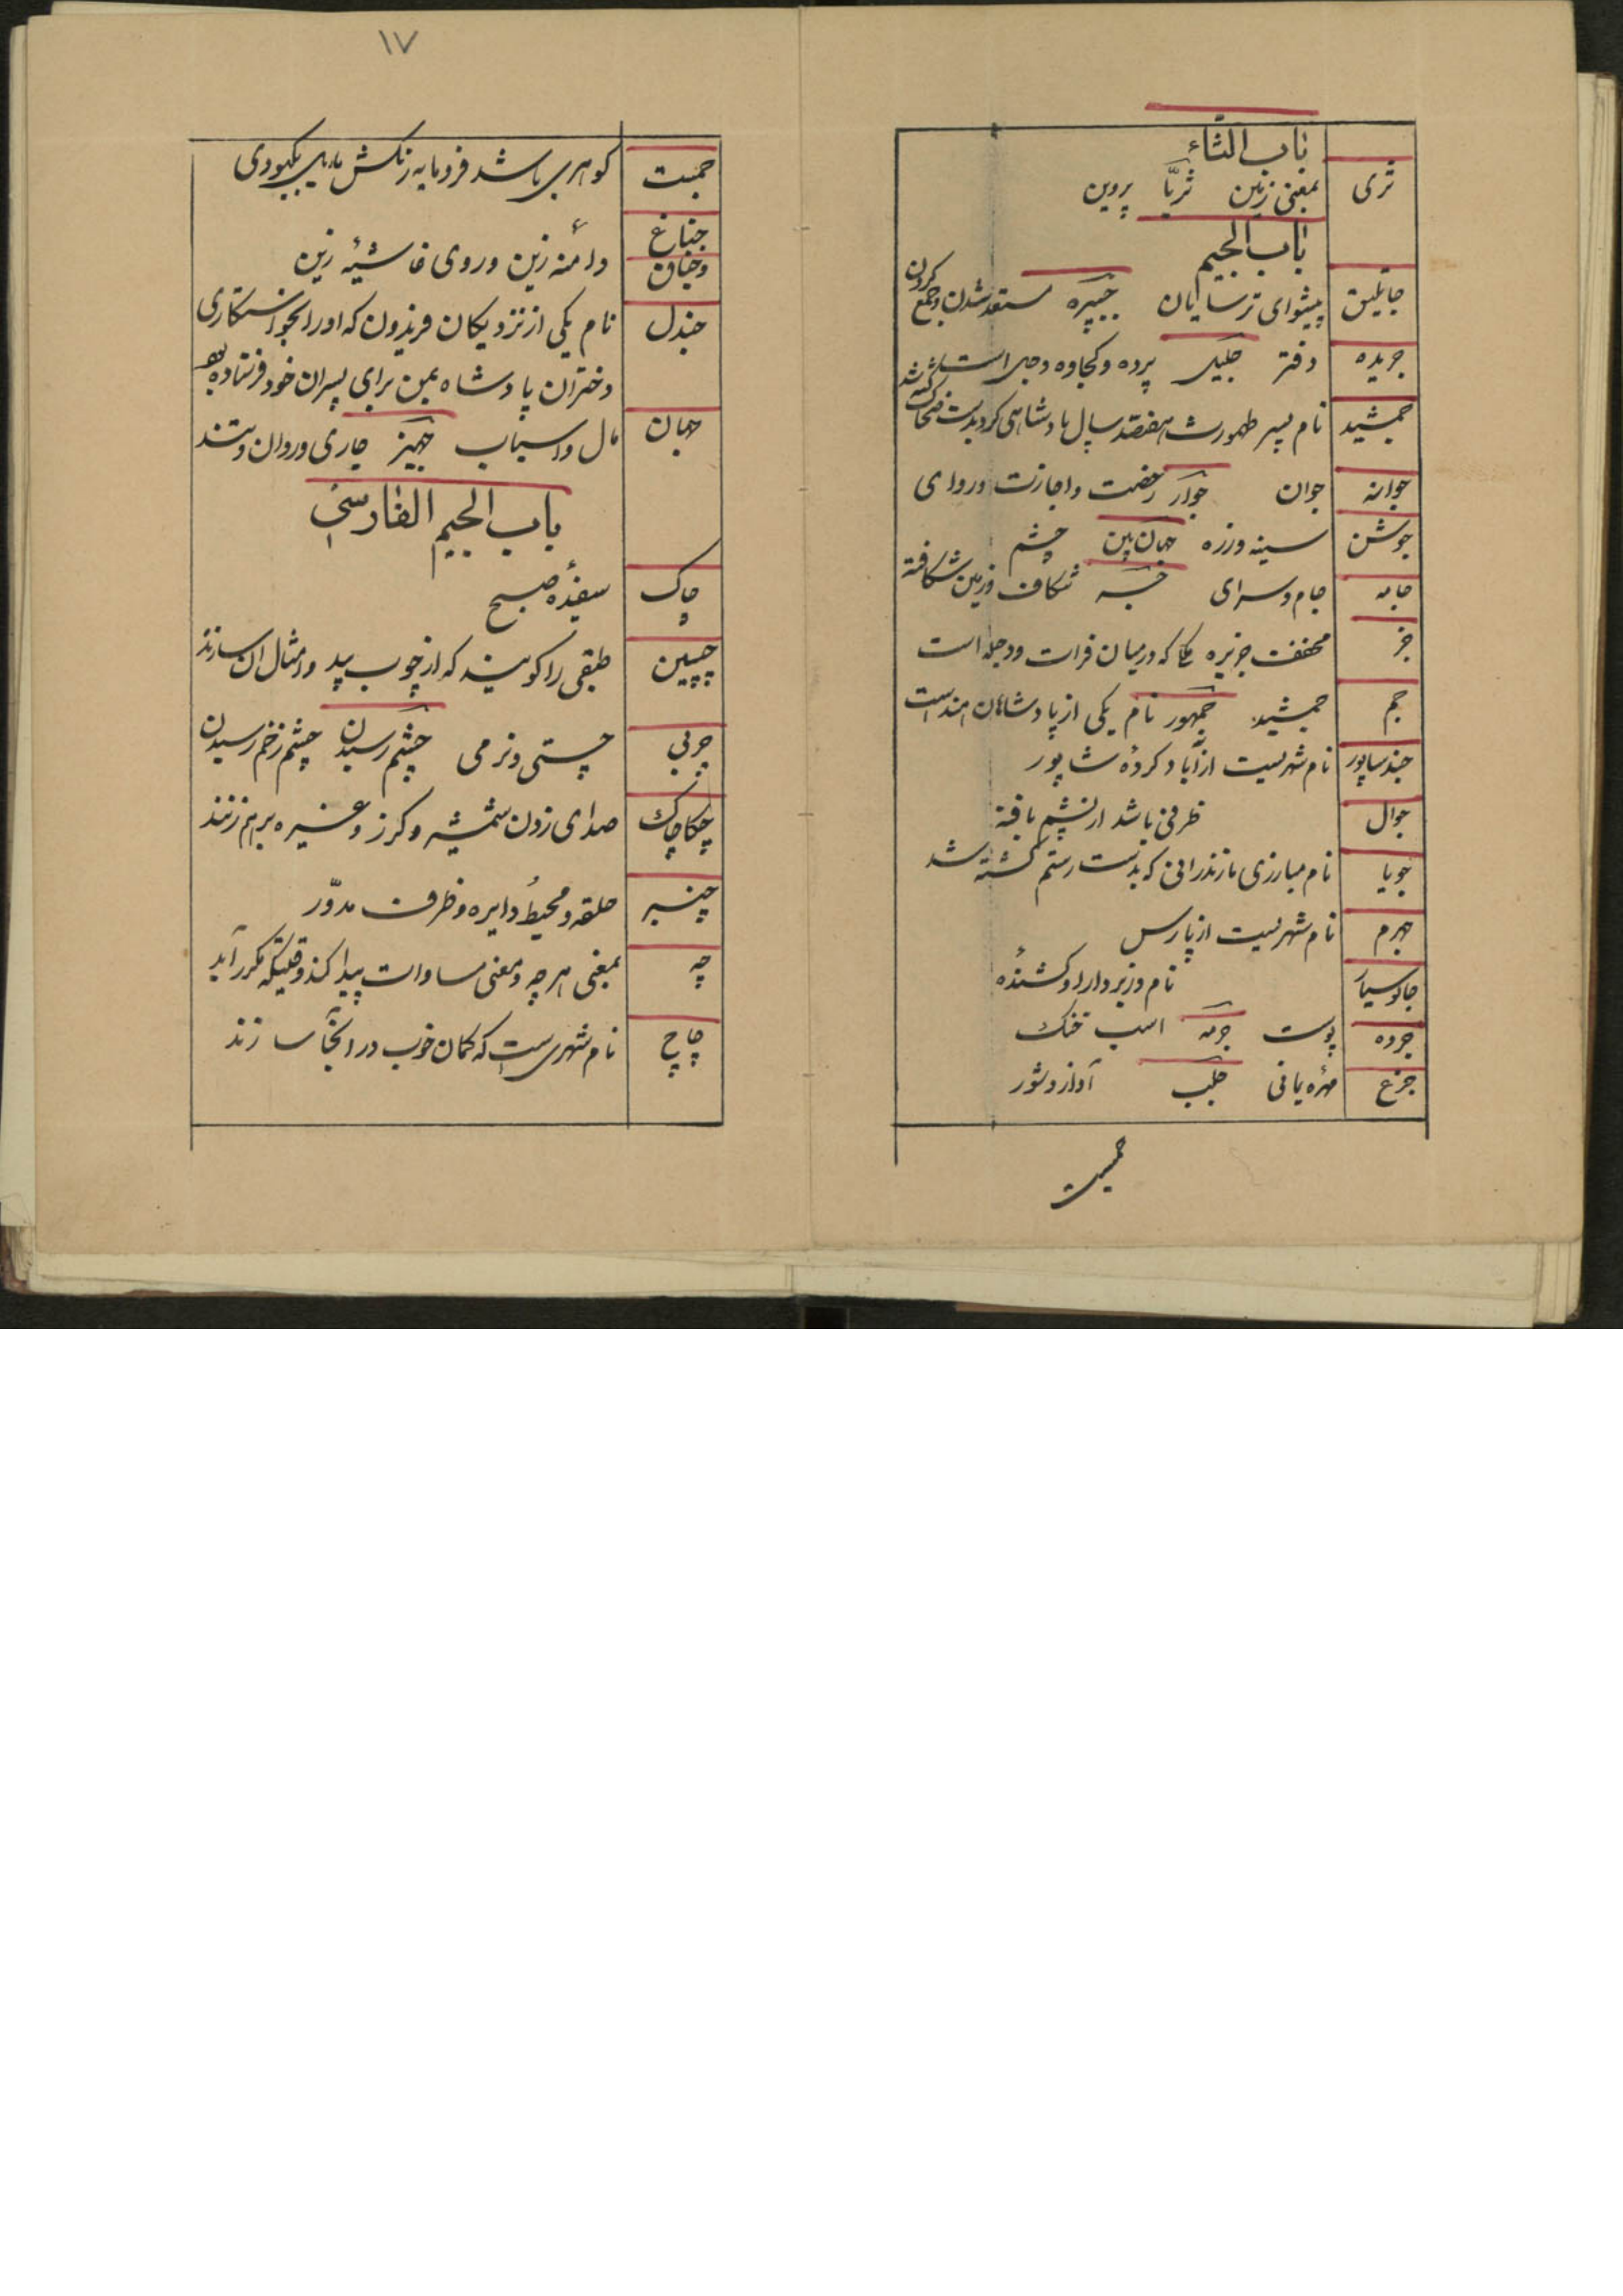 باب الثاء
ثری بمعنی زمین ثریّا پروین
باب الجیم
جاثلیق پیشوای ترسایان جبیره مستعد شدن و جمع کردن
جریده دفتر جلیل پرده و کجاوه و جل است
جمشید نام پسر طهمورث هفتصد سال پادشاهی کرد بدست ضحاک کشته شد
جوانه جوان جواز رخصت و اجازت و روای
جوشن سینه و زره جهان بین چشم
جامه جام و سرای شکاف و زمین شکافته
جز مخفف جزیره که در میان فرات و دجله است
جم جمشید جمهور نام یکی از پادشاهان هند است
جندساپور نام شهریست از آباد کردهٔ شاپور
جوال ظرفی باشد از پشم بافته
جویا نام مبارزی مازندرانی که بدست رستم کشته شد
جهرم نام شهریست از پارس
جانوسیار نام وزیر دارا و کشندهٔ
جرده پوست جرمه اسب خنک
جزع مهره یمانی جلب آواز و شور
جمست
۱۷
جمست کوهری باشد فرومایه رنکش مایل بکبودی
جناغ وجناق دامنه زین و روی غاشیهٔ زین
جندل نام یکی از نزدیکان فریدون که او را بخواستکاری
دختران پادشاه یمن برای پسران خود فرستاده بود
جهان مال و اسباب جهیز جاری و روان و تند
باب الجیم الفارسی
چاک سفیدهٔ صبح
چپین طبقی را کویند که از چوب بید و امثال ان سازند
چربی چستی و نرمی چشم رسیدن چشم زخم رسیدن
چکاچاک صدای زدن شمشیر و کرز و غیره برهم زنند
چنبر حلقه و محیط دایره و ظرف مدوّر
چه بمعنی هرچه و معنی مساوات پیدا کند وقتیکه مکرر آید
چاچ نام شهریست که کمان خوب در انجا سازند